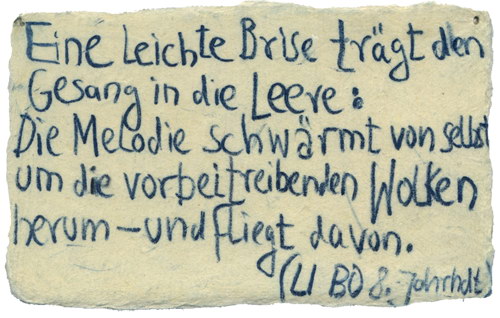 Eine leichte Brise trägt den
Gesang in die Leere:
Die Melodie schwärmt von selbst
um die vorbeitreibenden Wolken
herum – und fliegt davon.
(LI BO 8. Jahrhdt)